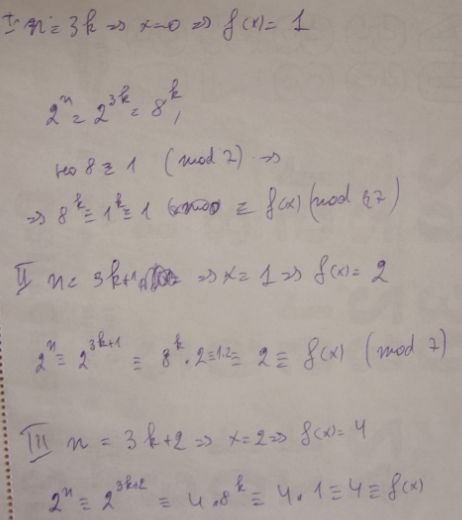 I n = 3k => x=0 => f(x) = 1
2^n = 2^{3k} = 8^k,
но 8 ≡ 1 (mod 7) =>
=> 8^k ≡ 1^k ≡ 1 ≡ f(x) (mod 7)
II n = 3k+1 => x = 1 => f(x) = 2
2^n ≡ 2^{3k+1} ≡ 8^k . 2 ≡ 1.2 ≡ 2 ≡ f(x) (mod 7)
III n = 3k+2 => x=2 => f(x)=4
2^n ≡ 2^{3k+2} ≡ 4.8^k ≡ 4.1 ≡ 4 ≡ f(x)